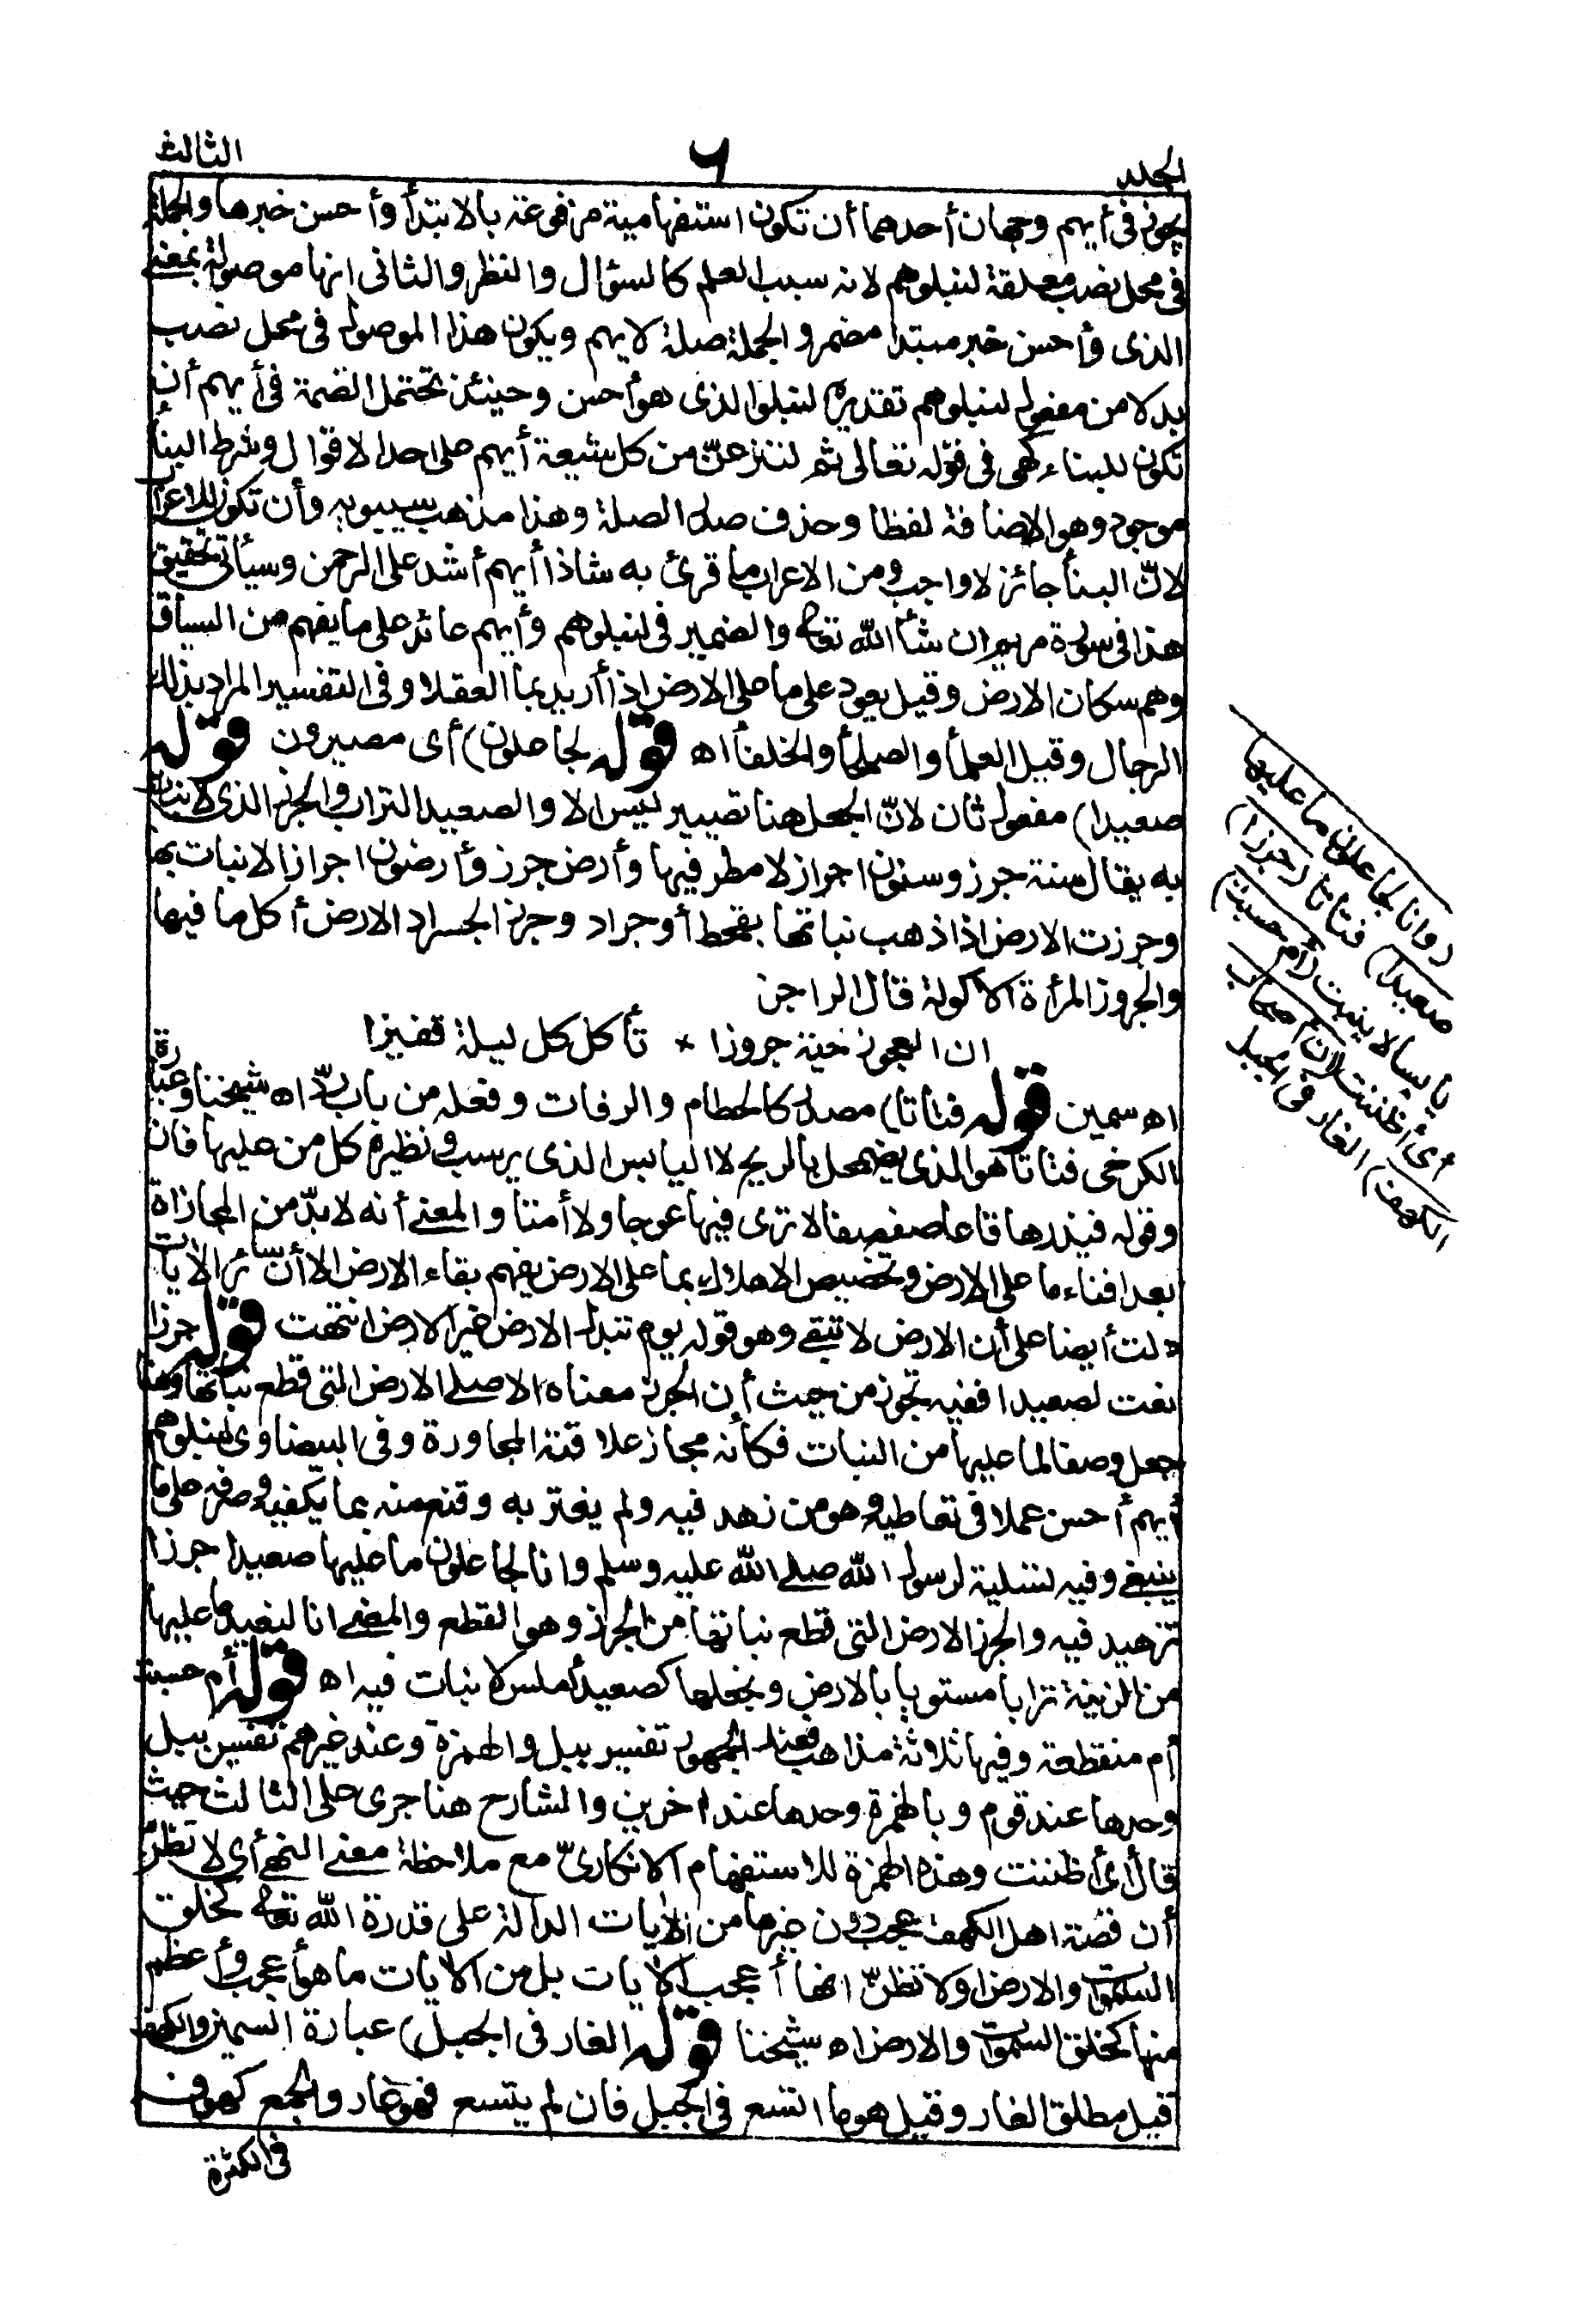 الجلد ٦ الثالث
يجوز فى أيهم وجهان أحدهما أن تكون استفهامية مرفوعة بالابتدأ وأحسن خبرها والجملة
فى محل نصب معلقة لنبلوهم لانه سبب العلم كالسؤال والنظر والثانى انها موصولة بمعنے
الذى وأحسن خبر مبتدا مضمر والجملة صلة لايهم ويكون هذا الموصول فى محل نصب
بدلا من مفعول لنبلوهم تقديره لنبلوا الذى هو أحسن وحينئذ تحتمل الضمة فى أيهم أن
تكون للبناء كهى فى قوله تعالى ثم لننزعنّ من كل شيعة أيهم على احد الاقوال وشرط البنأ
موجود وهو الاضافة لفظا وحذف صدر الصلة وهذا مذهب سيبويه وأن تكون للاعراب
لانّ البنأ جائز لا واجب ومن الاعراب ما قرئ به شاذا أيهم أشد على الرحمن وسيأتى تحقيق
هذا فى سورة مريم ان شأ الله تعالى والضمير فى لنبلوهم وأيهم عائد على ما يفهم من السياق
وهم سكان الارض وقيل يعود على ما على الارض اذا أريد بما العقلا وفى التفسير المراد بذلك
الرجال وقيل العلمأ والصلحأ والخلفأ اه قوله لجاعلون) أى مصيرون قوله
صعيدا) مفعول ثان لانّ الجعل هنا تصيير ليس الا والصعيد التراب والجرز الذى لا نبات
به يقال سنة جرز وسنون اجراز لا مطر فيها وأرض جرز وأرضون اجراز لا نبات بها
وجرزت الارض اذا ذهب نباتها بقحط أو جراد وجرز الجراد الارض أكل ما فيها
والجروز المرأة الاكولة قال الراجز
ان العجوز خبة جروزا * تأكل كل ليلة قفيزا
اه سمين قوله فتاتا) مصدر كالحطام والرفات وفعله من باب ردّ اه شيخنا وعبارة
الكرخى فتاتا هو الذى يضمحل بالريح لا اليابس الذى يرسب ونظيره كل من عليها فان
وقوله فيذرها قاعا صفصفا لا ترى فيها عوجا ولا أمتا والمعنے أنه لا بدّ من المجازاة
بعد افناء ما على الارض وتخصيص الاهلاك بما على الارض يفهم بقاء الارض الا أن سائر الايات
دلت أيضا على أن الارض لا تبقے وهو قوله يوم تبدل الارض غير الارض انتهت قوله جرزا
نعت لصعيدا ففيه تجوز من حيث أن الجرز معناه الاصلے الارض التى قطع نباتها وهنا
جعل وصفا لما عليها من النبات فكأنه مجاز علاقته المجاورة وفى البيضاوى لنبلوهم
أيهم أحسن عملا فى تعاطيه وهو من زهد فيه ولم يغتر به وقنع منه بما يكفيه وصرفه على ما
ينبغے وفيه تسلية لرسول الله صلے الله عليه وسلم وانا لجاعلون ما عليها صعيدا جرزا
تزهيد فيه والجرز الارض التى قطع نباتها من الجرز وهو القطع والمعنے انا لنعيد ما عليها
من الزينة ترابا مستويا بالارض ونجعلها كصعيد أملس لا نبات فيه اه قوله أم حسبت
أم منقطعة وفيها ثلاثة مذاهب فعند الجمهور تفسير ببل والهمزة وعند غيرهم تفسير ببل
وحدها عند قوم وبالهمزة وحدها عند اخرين والشارح هنا جرى على الثالث حيث
قال أى أظننت وهذه الهمزة للاستفهام الانكارىّ مع ملاحظة معنے النهے أى لا تظنّ
أن قصة اهل الكهف عجب دون غيرها من الايات الدالة على قدرة الله تعالى كخلق
السموات والارض ولا تظنّ انها أعجب الايات بل من الايات ما هو أعجب وأعظم
منها كخلق السموات والارض اه شيخنا قوله الغار فى الجبل) عبارة السمين والكهف
قيل مطلق الغار وقيل هو ما اتسع فى الجبل فان لم يتسع فهو غار والجمع كهوف
فى الكثرة
(وانا لجاعلون ما عليها
صعيدا) فتاتا (جرزا)
يابسا لا ينبت (أم حسبت)
أى أظننت (أن أصحاب
الكهف) الغار فى الجبل